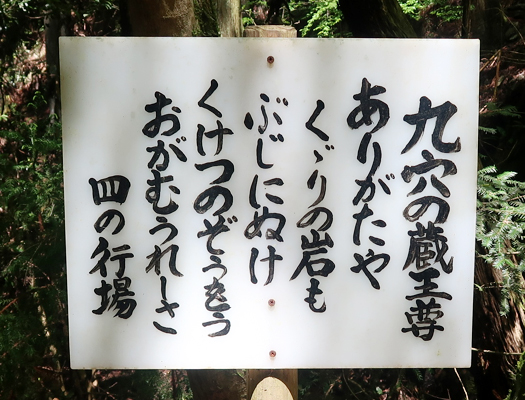 九穴の蔵王尊
ありがたや
くゞりの岩も
ぶじにぬけ
くけつのぞうをう
おがむうれしさ
四の行場